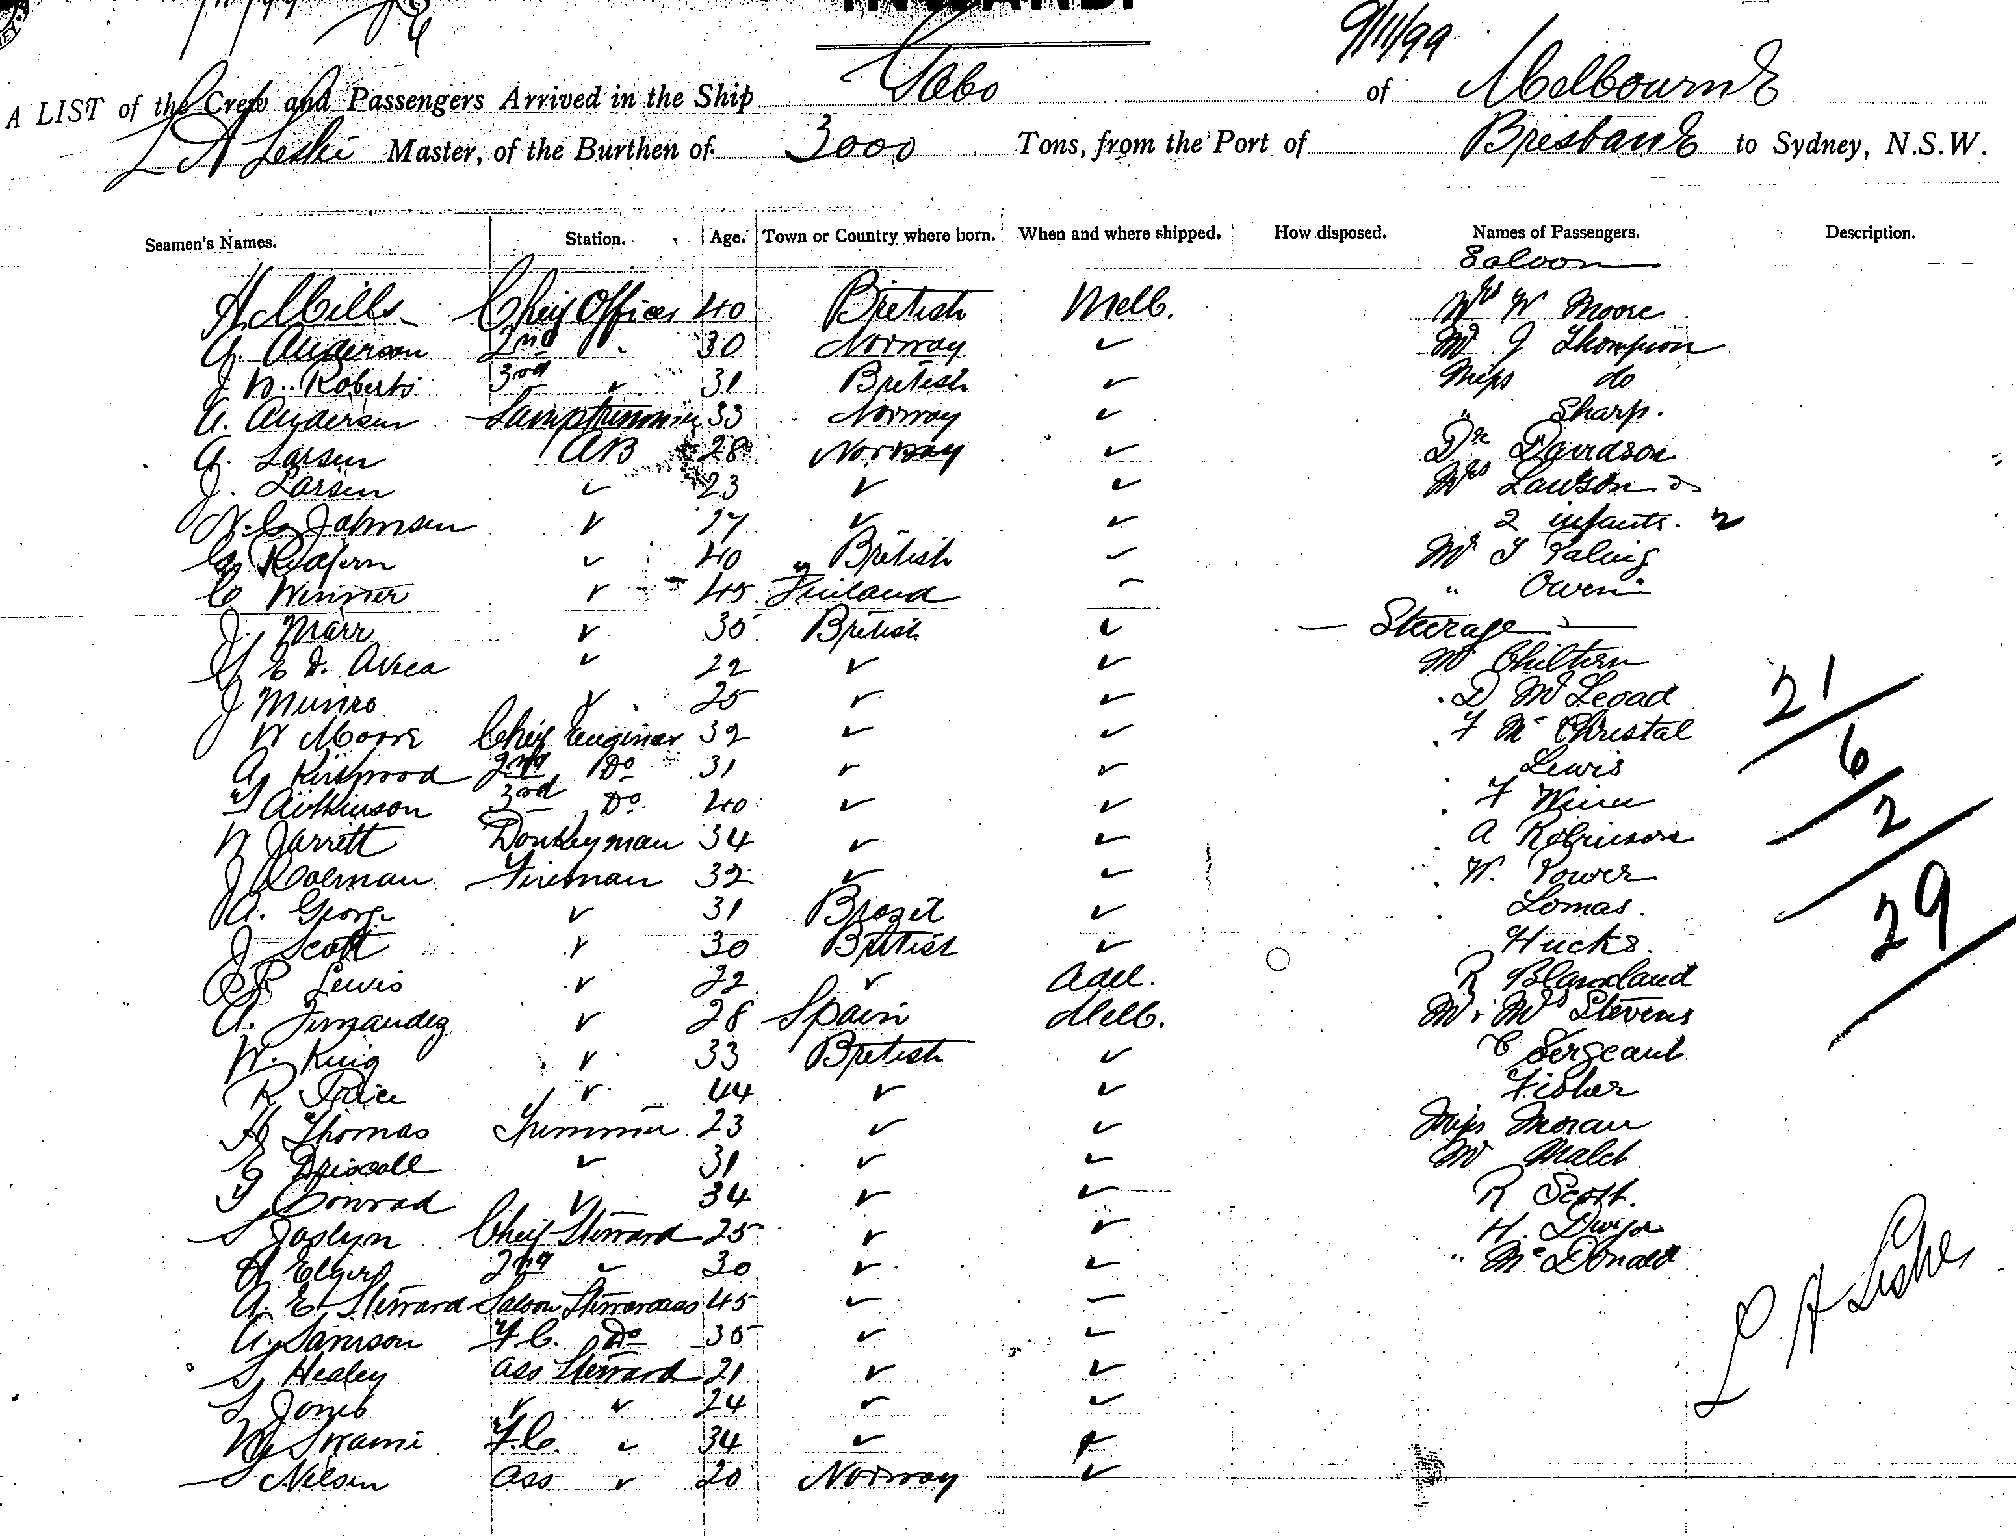 9/11/99
A LIST of the Crew and Passengers Arrived in the Ship Gabo of Melbourne
L A Leske Master, of the Burthen of 3000 Tons, from the Port of Brisbane to Sydney, N.S.W.
Seamen's Names. Station. Age. Town or Country where born. When and where shipped. How disposed. Names of Passengers. Description.
Saloon
H. Mills Chief Officer 40 British Melb. Mrs W Moore
A. Anderson 2nd " 30 Norway ✓ Mr J Thompson
J W. Roberts 3rd ✓ 31 British ✓ Miss do
A. Andersen Lamptrimmer 33 Norway ✓ " Sharp.
A. Larsen AB 28 Norway ✓ Dr Davidson
J. Larsen ✓ 23 ✓ ✓ Mrs Lawson &
N. C. Johnsen ✓ 27 ✓ ✓ 2 infants. 2
Redfern ✓ 40 British ✓ Mr Paling
C Winner ✓ 45 Finland ✓ " Owen
J. Marr ✓ 30 British ✓ — Steerage —
E D. ✓ 22 ✓ ✓ Mr Chiltern
J Munro ✓ 25 ✓ ✓ D McLeoad
W Moore Chief Engineer 32 ✓ ✓ F McChristal
A. Kirkwood 2nd Do 31 ✓ ✓ Lewis
Aitkinson 3rd Do 40 ✓ ✓ F
W Jarrett Donkeyman 34 ✓ ✓ A Robinson
J Colman Fireman 32 ✓ ✓ W. Power
A. George ✓ 31 Brazil ✓ Lomas.
J Scott ✓ 30 British ✓ Hucks.
Lewis ✓ 22 ✓ Adel. R Blaxland
A. Fernandez ✓ 28 Spain Melb. Mr & Mrs Stevens
W. King ✓ 33 British ✓ C Sergeant
R Price ✓ 44 ✓ ✓ Fisher
H Thomas Trimmer 23 ✓ ✓ Miss Moran
E Driscoll ✓ 31 ✓ ✓ Mr
Conrad ✓ 34 ✓ ✓ R Scott.
S Joslyn Chief Steward 25 ✓ ✓ H.
2nd ✓ 30 ✓ ✓ " McDonald
A. E. Steward Saloon Stewardess 45 ✓ ✓
A. Samson F.C. Do 35 ✓ ✓
S Healey Ass Steward 21 ✓ ✓
S Jones ✓ ✓ 24 ✓ ✓
F.C. ✓ 34 ✓ ✓
Nelsen Ass ✓ 20 Norway ✓
21
6
2
29
L A Leske